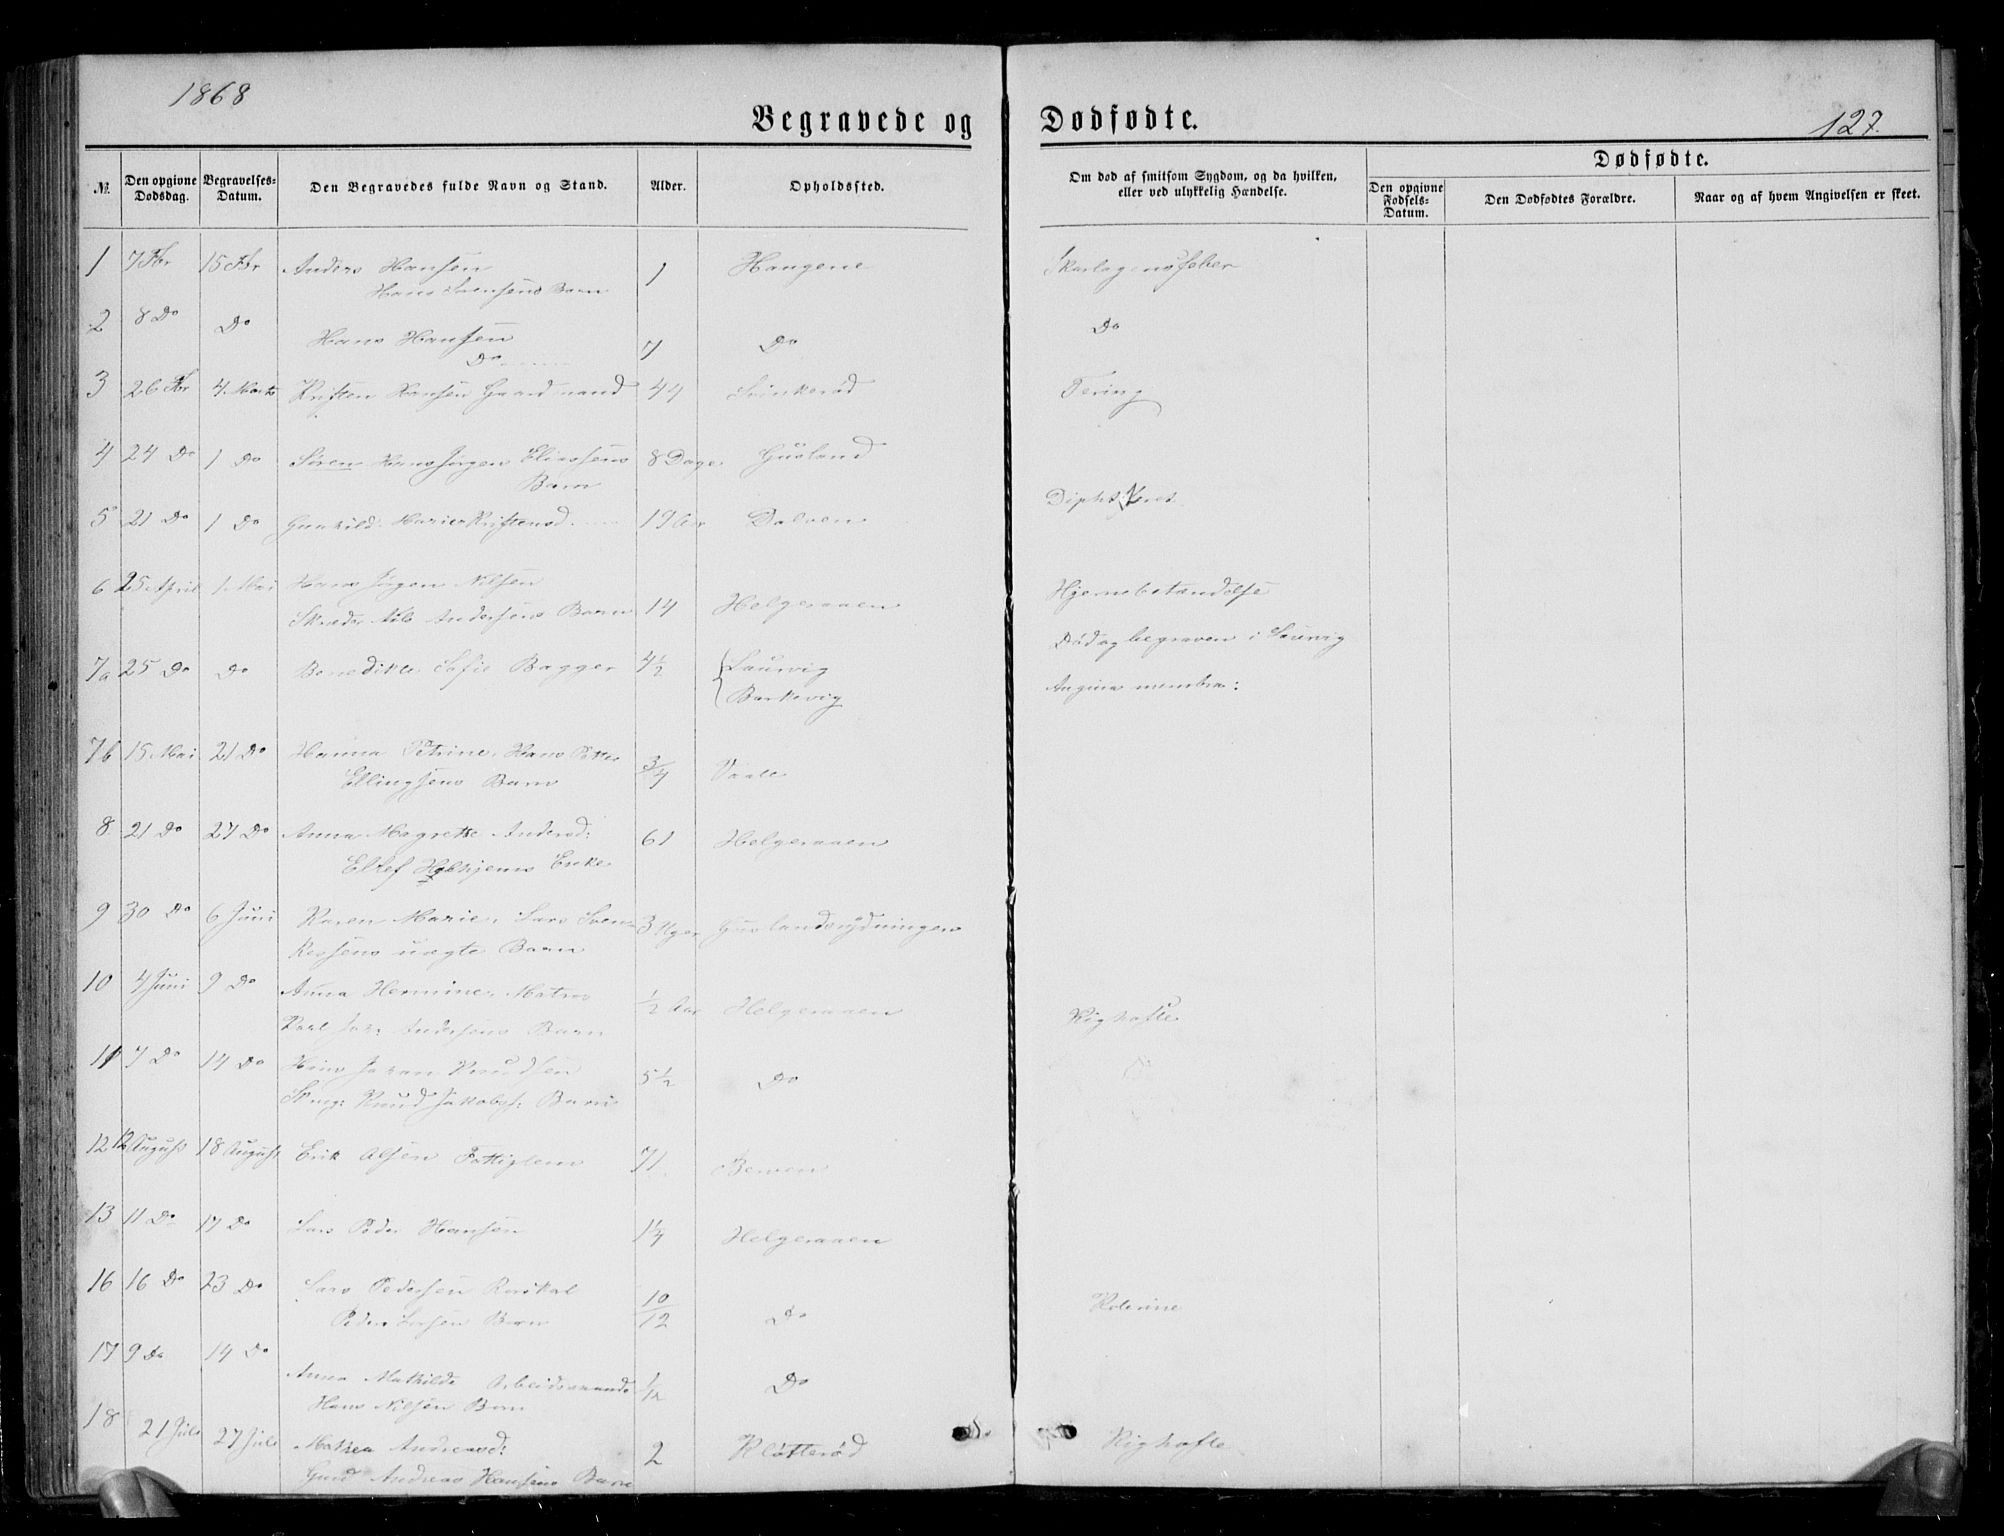 1868
Begravede og Dødfødte.
127.
№.
Den opgivne Dødsdag.
Begravelses-Datum.
Den Begravedes fulde Navn og Stand.
Alder.
Opholdssted.
Om død af smitsom Sygdom, og da hvilken, eller ved ulykkelig Hændelse.
Dødfødte.
Den opgivne Fødsels-Datum.
Den Dødfødtes Forældre.
Naar og af hvem Angivelsen er skeet.
1 7 Fbr 15 Fbr Anders Hansen 1 Haugene Skarlagensfeber
Hans Barn
2 8 Do Do Hans Hansen 7 Do Do
Do
3 26 Fbr 4 Marts Kristen Hansen Gaardmand 44 Svinkerød Tering
4 24 Do 1 Do Søren Hans Jørgen Eliassens 8 Dage Gusland
Barn
5 21 Do 1 Do Gunhild Marie Kristensd. 19 Aar Dalven
6 25 April 1 Mai Hans Jørgen Nilsen
Skræder Nils Andersens Barn 14 Helgeraaen Hjernebetændelse
Død og begraven i Laurvig
7a 25 Do Do Benedikte Sofie Bagger 4½ Laurvig
Barkevig Angina membra:
7b 15 Mai 21 Do Hanna Petrine, Hans
Ellingsens Barn 3/4
8 21 Do 27 Do Anna Magrette Andersd: 61 Helgeraaen
Enke
9 30 Do 6 Juni Karen Marie, Lars Sven-
kessens uægte Barn 3 Uger Guslandsrydningen
10 4 Juni 9 Do Anna Hermine, Matros ½ Aar Helgeraaen
Karl Andersens Barn Kighoste
11 7 Do 14 Do Hans Knudsen 5½ Do
Knud Jakobs: Barn
12 12 August 18 August Erik Olsen Fattiglem 71
13 11 Do 17 Do Lars Peder Hansen 1¼ Helgeraaen
16 16 Do 23 Do Lars Pedersen 10/12 Do Kolerine
Peder Larsen Barn
17 9 Do 14 Do
Anna Mathilde Arbeidsmand 1/12 Do
Hans Nilsen Barn
18 21 Juli 27 Juli Mathea Andreasd: 2 Kløtterød Kighoste
Andreas Hansens Barn